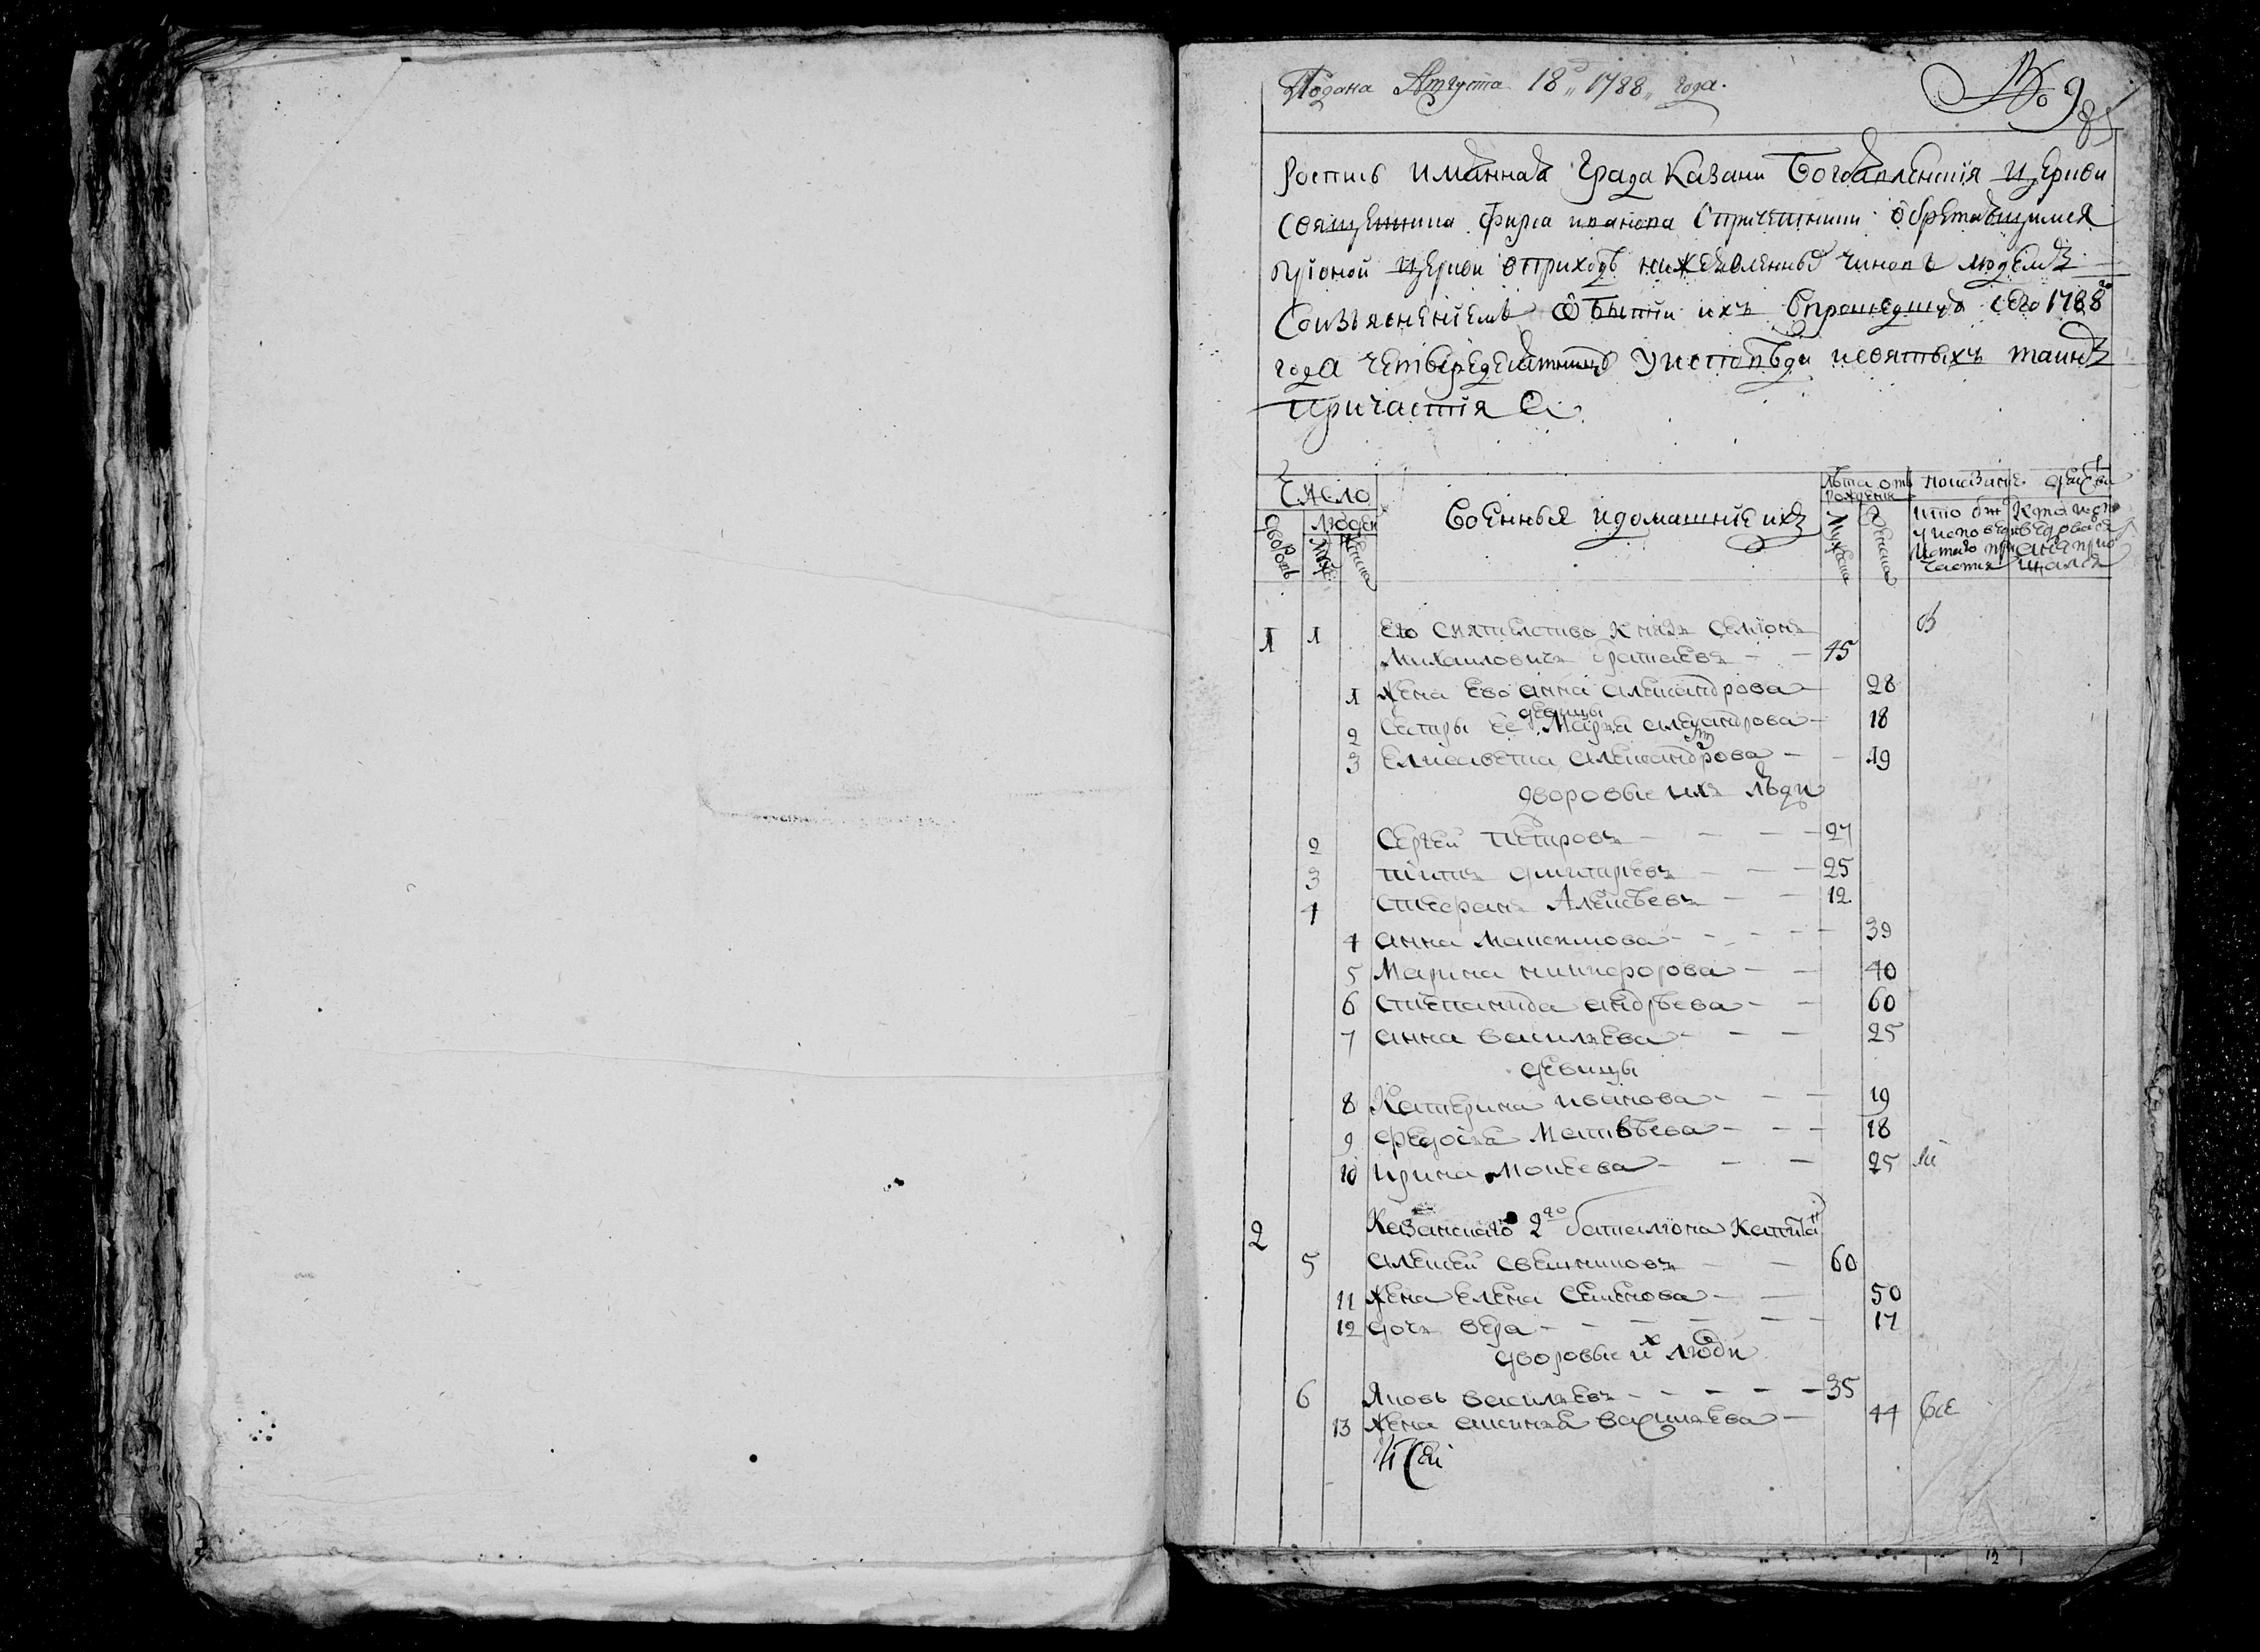 Подана Августа 18,, 1788,, года.
№ 9
85
Роспись имянная Града Казани Богоявленския Церкви
священника Фирса иванова спричетники обретающимся
прионой Церкви вприходѣ нижеявленных чиновъ людемъ
Соизъяснениемъ о бытии ихъ впрошедшую сего 1788 го
года четыредесятницу Уисповѣди исвятыхъ таинъ
причастия
Число
дворовъ
людей
муж:
женска
военныя идомашние ихъ
лѣта отъ рождения
мужска
женска
показание действа
кто был уисповеди исвятаго причастия
кто исповедовался анепричащался
1 1 Его сиятелство князь Семионъ
Михаиловичь Баратаевъ — — 45
1 жена Ево анна александрова — 28
девицы
2 Сестры ее Марья александрова — 18
3 Елисавета александрова — — 19
дворовые ихъ люди
2 Сергей Петровъ — — — 27
3 титъ дмитриевъ — — — 25
4 стефанъ Алексѣевъ — — 12
4 анна Максимова — — — — 39
5 Марина никифорова — — 40
6 степанида андрѣева — — 60
7 анна василиева — — — 25
девицы
8 Катерина иванова — — — 19
9 федосья Матвѣева — — — 18
10 ирина Моисеева — — — 25
2 Казанскаго 2го баталиона капитан
5 алексей свешниковъ — — 60
11 жена елена Семенова — — 50
12 дочь вера — — — — — — 17
дворовые их люди
6 Яковъ василиевъ — — — — — 35
13 жена аксинья василиева — 44 все